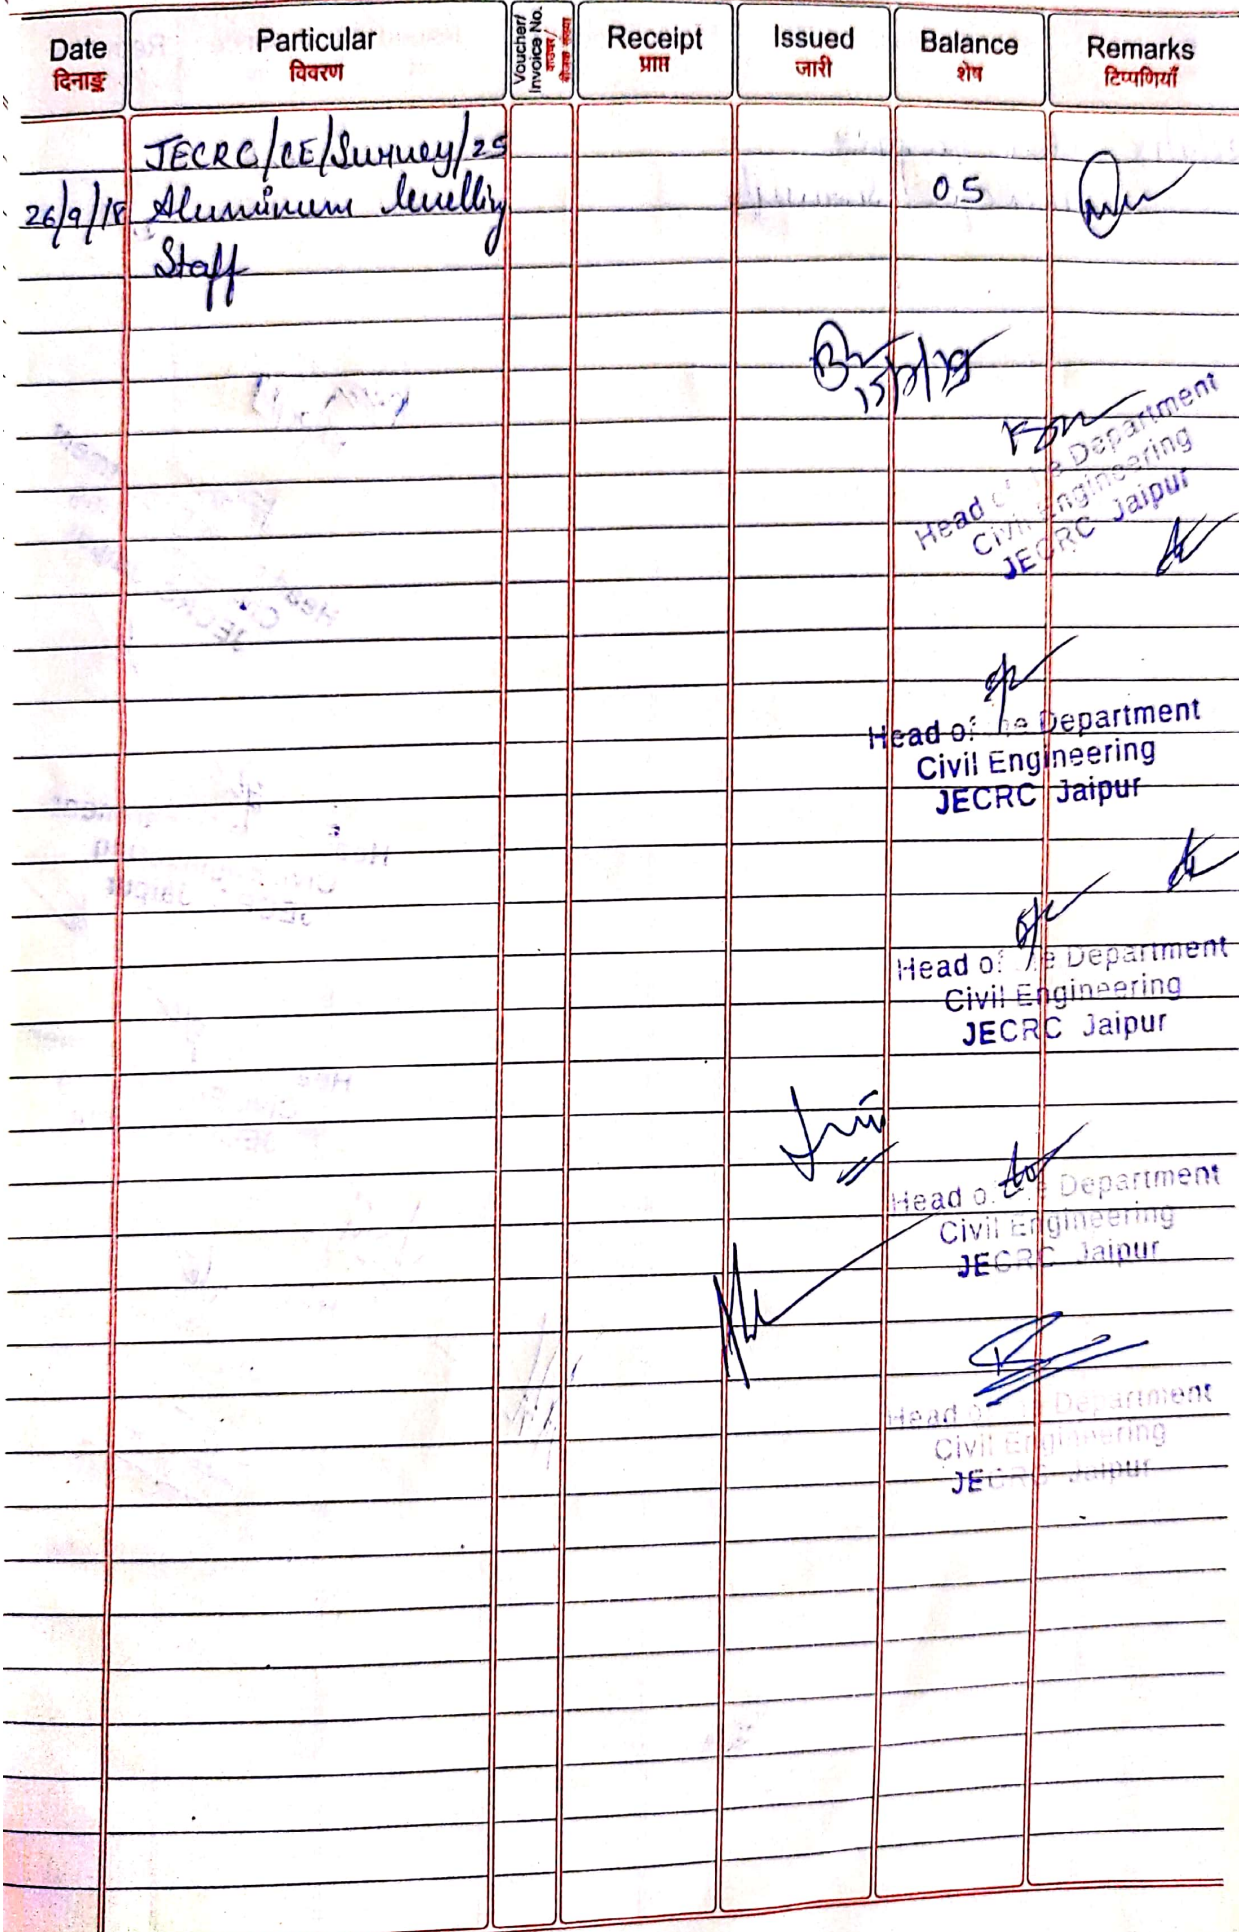 Date Particular Voucher/ Invoice No. Receipt Issued Balance Remarks
दिनाङ्क विवरण वाउचर/ बीजक संख्या प्राप्त जारी शेष टिप्पणियाँ
JECRC/CE/Survey/25
26/9/18 Aluminum levelling 05
Staff
Head of the Department
Civil Engineering
JECRC Jaipur
Head of the Department
Civil Engineering
JECRC Jaipur
Head of the Department
Civil Engineering
JECRC Jaipur
Head of the Department
Civil Engineering
JECRC Jaipur
Head of the Department
Civil Engineering
JECRC Jaipur